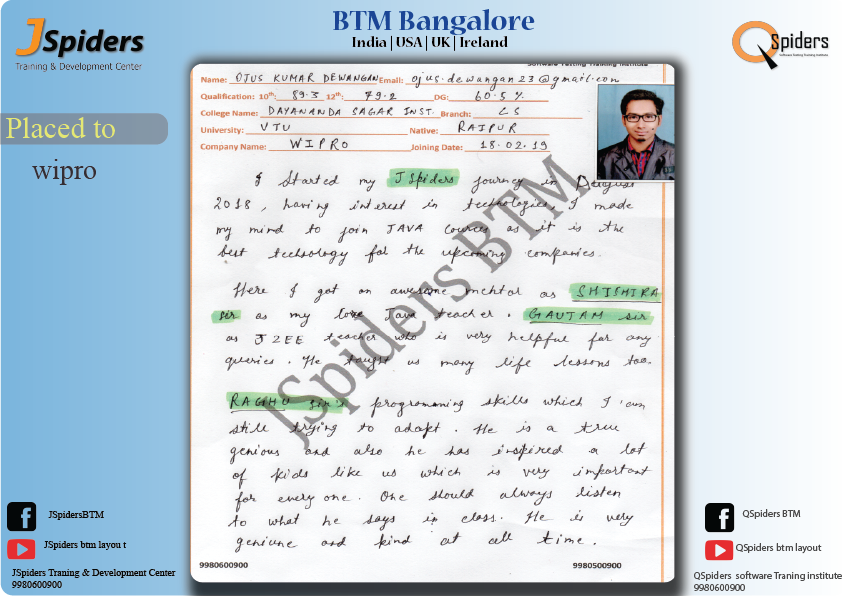 JSpiders
Training & Development Center
BTM Bangalore
India | USA | UK | Ireland
QSpiders
Software Testing Training Institute
Placed to
wipro
Software Testing Training Institute
Name: OJUS KUMAR DEWANGAN Email: ojus.dewangan23@gmail.com
Qualification: 10th: 89.3 12th: 79.2 DG: 60.5 %
College Name: DAYANANDA SAGAR INST. Branch: CS
University: VTU Native: RAIPUR
Company Name: WIPRO Joining Date: 18.02.19
I Started my JSpiders journey in August
2018, having interest in technologies, I made
my mind to join JAVA cources as it is the
best technology for the upcoming companies.
Here I got an awesome mentor as SHISHIRA
sir as my love Java teacher. GAUTAM sir
as J2EE teacher who is very helpful for any
queries. He taught us many life lessons too.
RAGHU sir's programming skills which I am
still trying to adapt. He is a true
genious and also he has inspired a lot
of kids like us which is very important
for every one. One should always listen
to what he says in class. He is very
geniune and kind at all time.
JSpiders BTM
9980600900 9980500900
JSpidersBTM
JSpiders btm layou t
JSpiders Traning & Development Center
9980600900
QSpiders BTM
QSpiders btm layout
QSpiders software Traning institute
9980600900